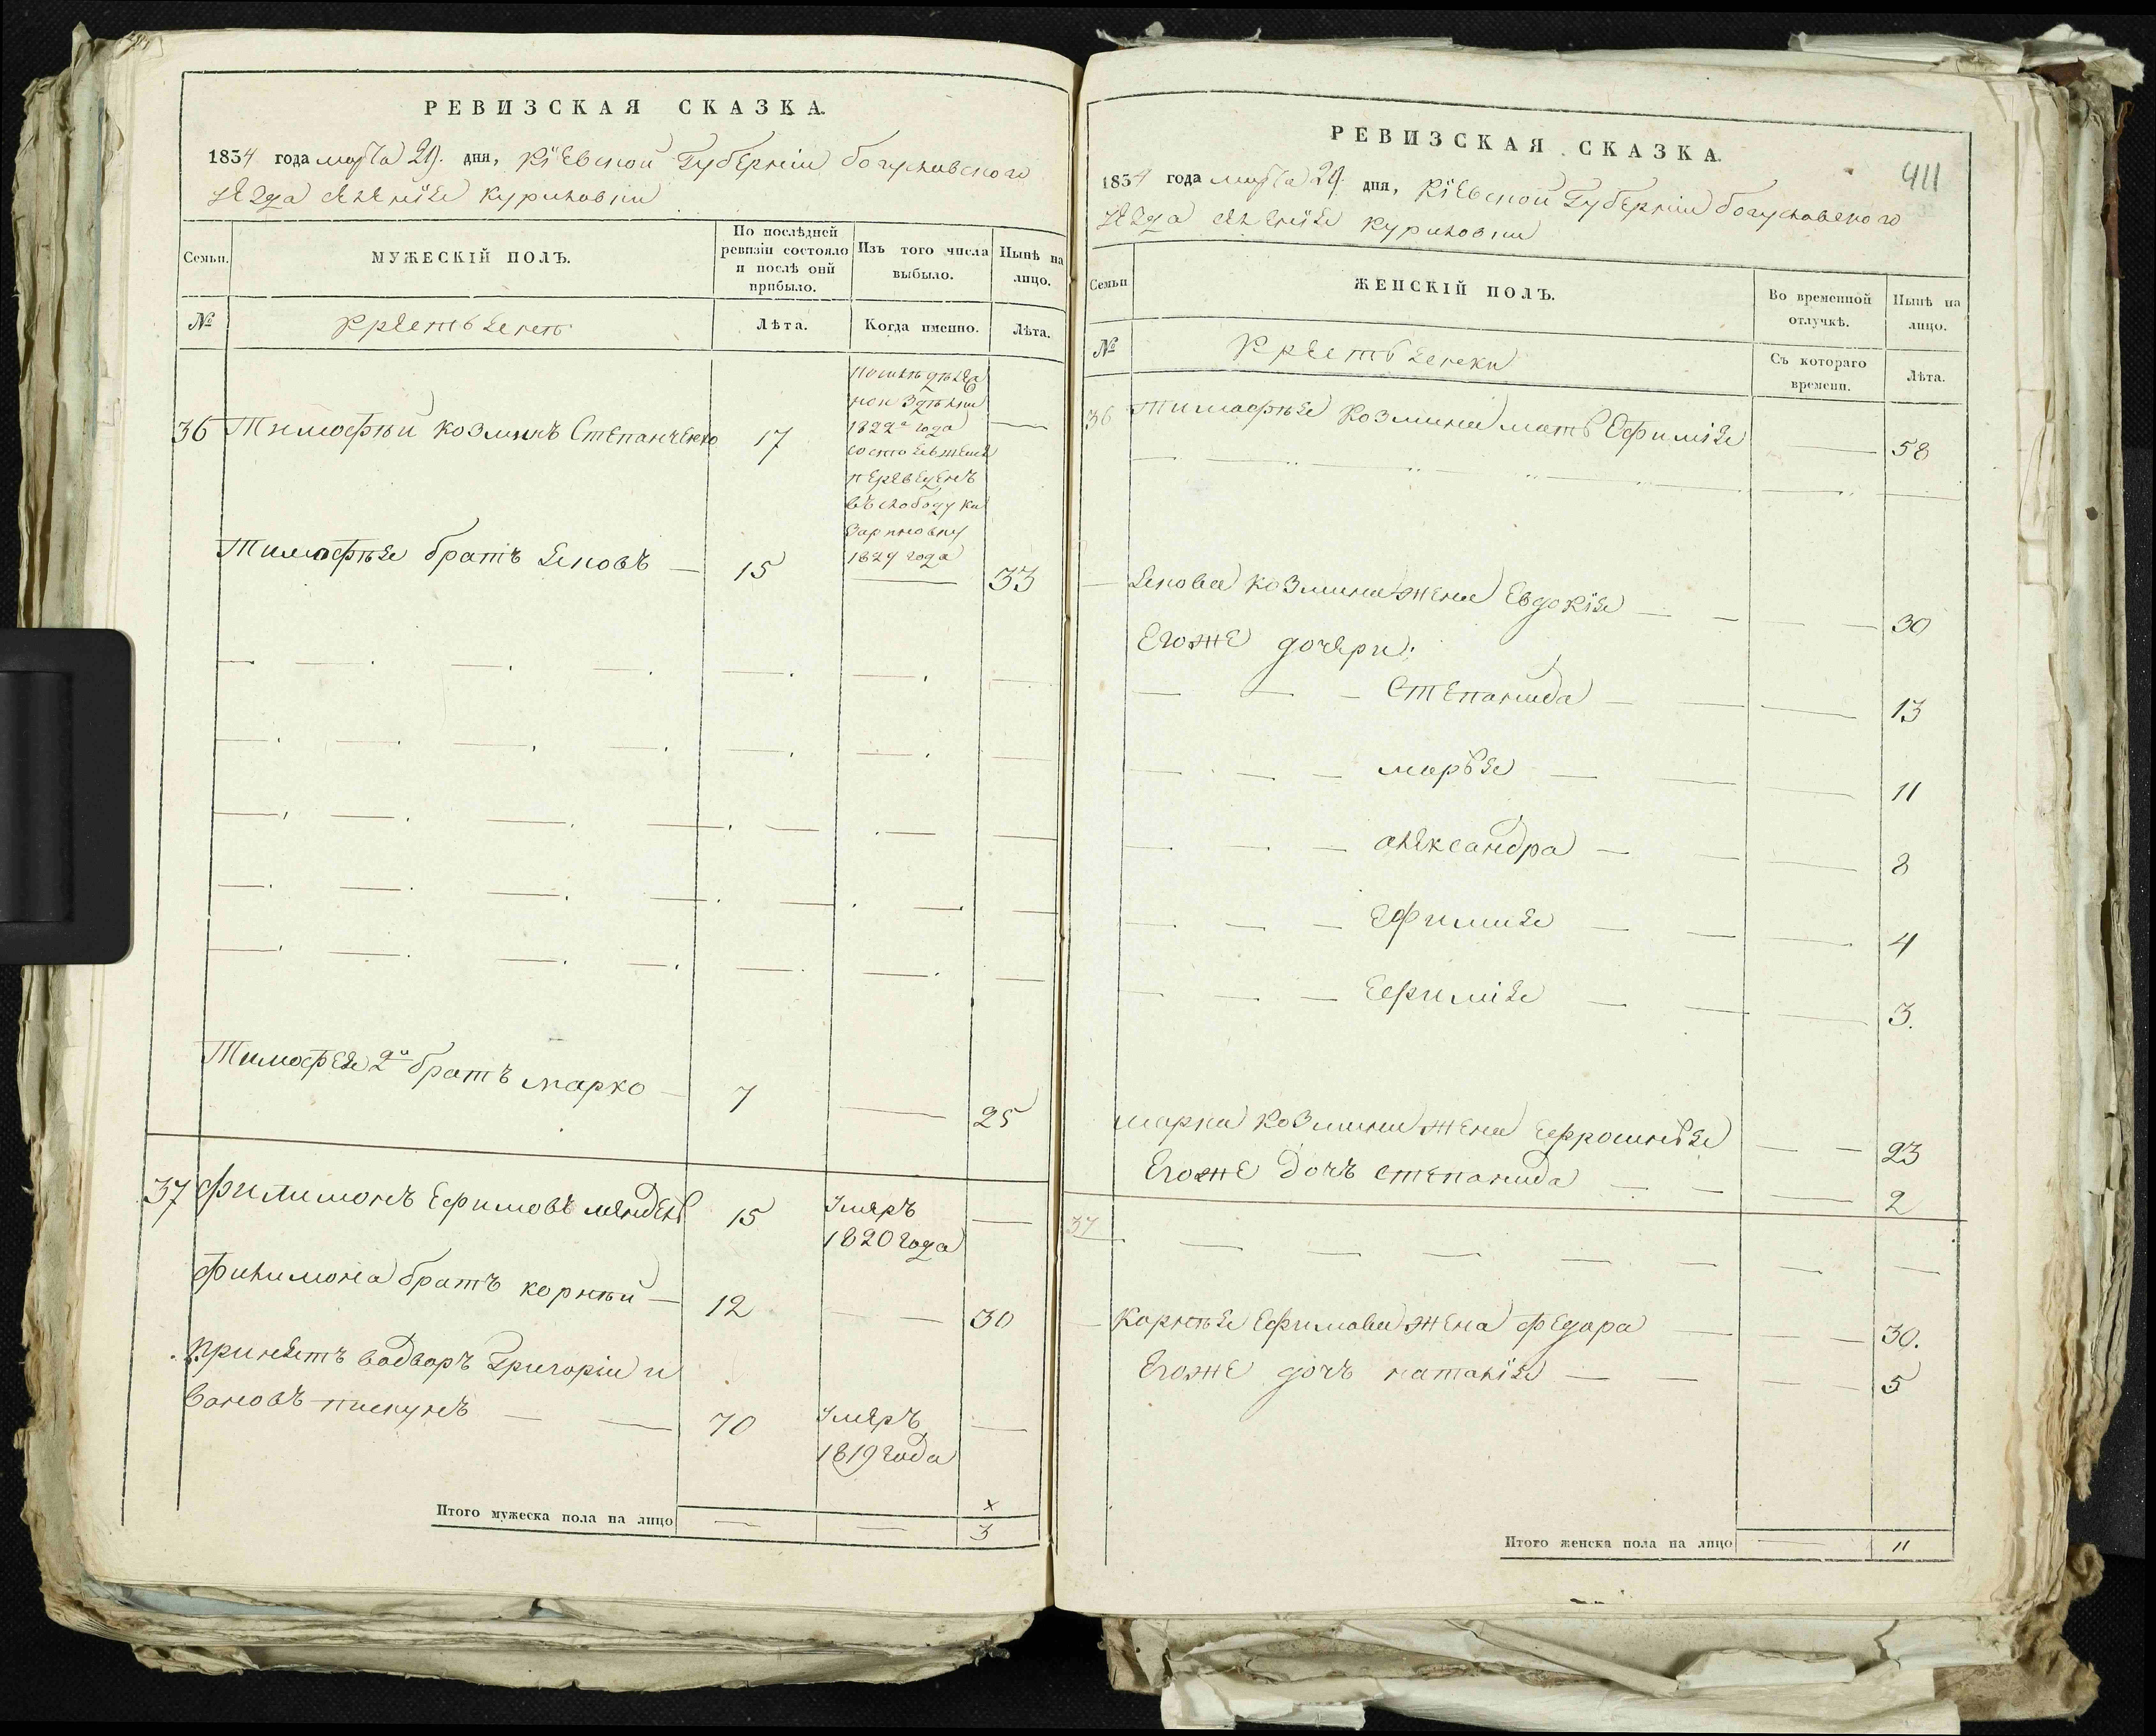 РЕВИЗСКАЯ СКАЗКА.
1834 года марта 29. дня, Кіевской Губерніи богуславскаго
уезда селенія Куриловки
Семьи. МУЖЕСКІЙ ПОЛЪ. По послѣдней ревизіи состояло и послѣ оной прибыло. Изъ того числа выбыло. Нынѣ на лицо.
№ Крестьяне Лѣта. Когда именно. Лѣта.
36 Тимофѣй Козминъ Степанченко 17 —
1822го года
переведенъ
въ слободу Ка
зариновку
1824 года
Тимофѣя братъ Яковъ — 15 — 33
Тимофея 2й братъ марко — 7 — 25
37 Филимонъ Ефимовъ 15 Умеръ —
1820 года
Филимона братъ корнѣй — 12 — 30
Принятъ водворъ Григорій и
вановъ пискунъ — 70 Умеръ —
1819 года
х
Итого мужеска пола на лицо — — 3
РЕВИЗСКАЯ СКАЗКА.
411
1834 года марта 29. дня, Кіевской Губерніи богуславскаго
уезда селенія Куриловки
Семьи ЖЕНСКІЙ ПОЛЪ. Во временной отлучкѣ. Нынѣ на лицо.
№ Крестьянки Съ котораго времени. Лѣта.
36 Тимофѣя Козмина мать Ефимія — 58
— Якова Козмина жена Евдокія — 30
Егоже дочери:
Степанида — 13
марья — 11
александра — 8
Ефимия — 4
Ефимія — 3.
марка Козмина жена Ефросинья — 23
Егоже дочь степанида — 2
37
— Корнѣя Ефимова жена федора — 30.
Егоже дочь наталія — 5
Итого женска пола на лицо — 11